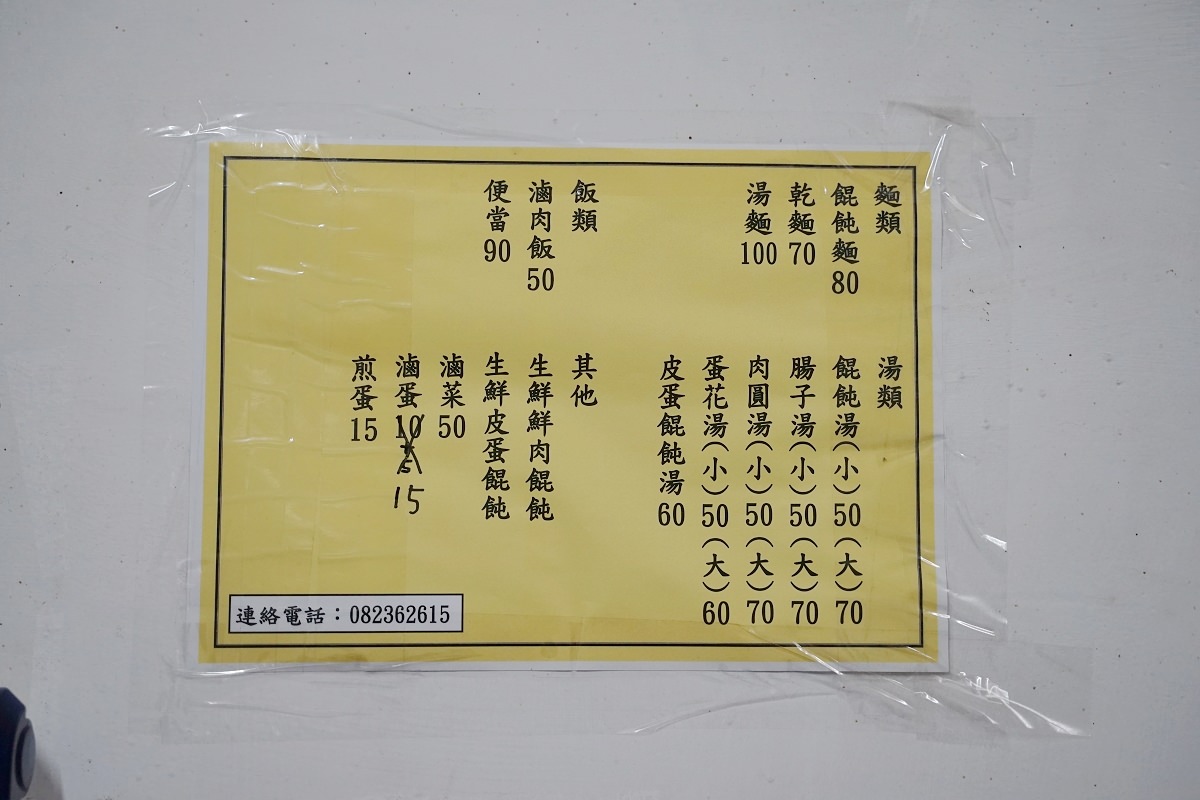 麵類
餛飩麵 80
乾麵 70
湯麵 100
飯類
滷肉飯 50
便當 90
湯類
餛飩湯(小)50(大)70
腸子湯(小)50(大)70
肉圓湯(小)50(大)70
蛋花湯(小)50(大)60
皮蛋餛飩湯 60
其他
生鮮鮮肉餛飩
生鮮皮蛋餛飩
滷菜 50
滷蛋 10 15
煎蛋 15
連絡電話：082362615